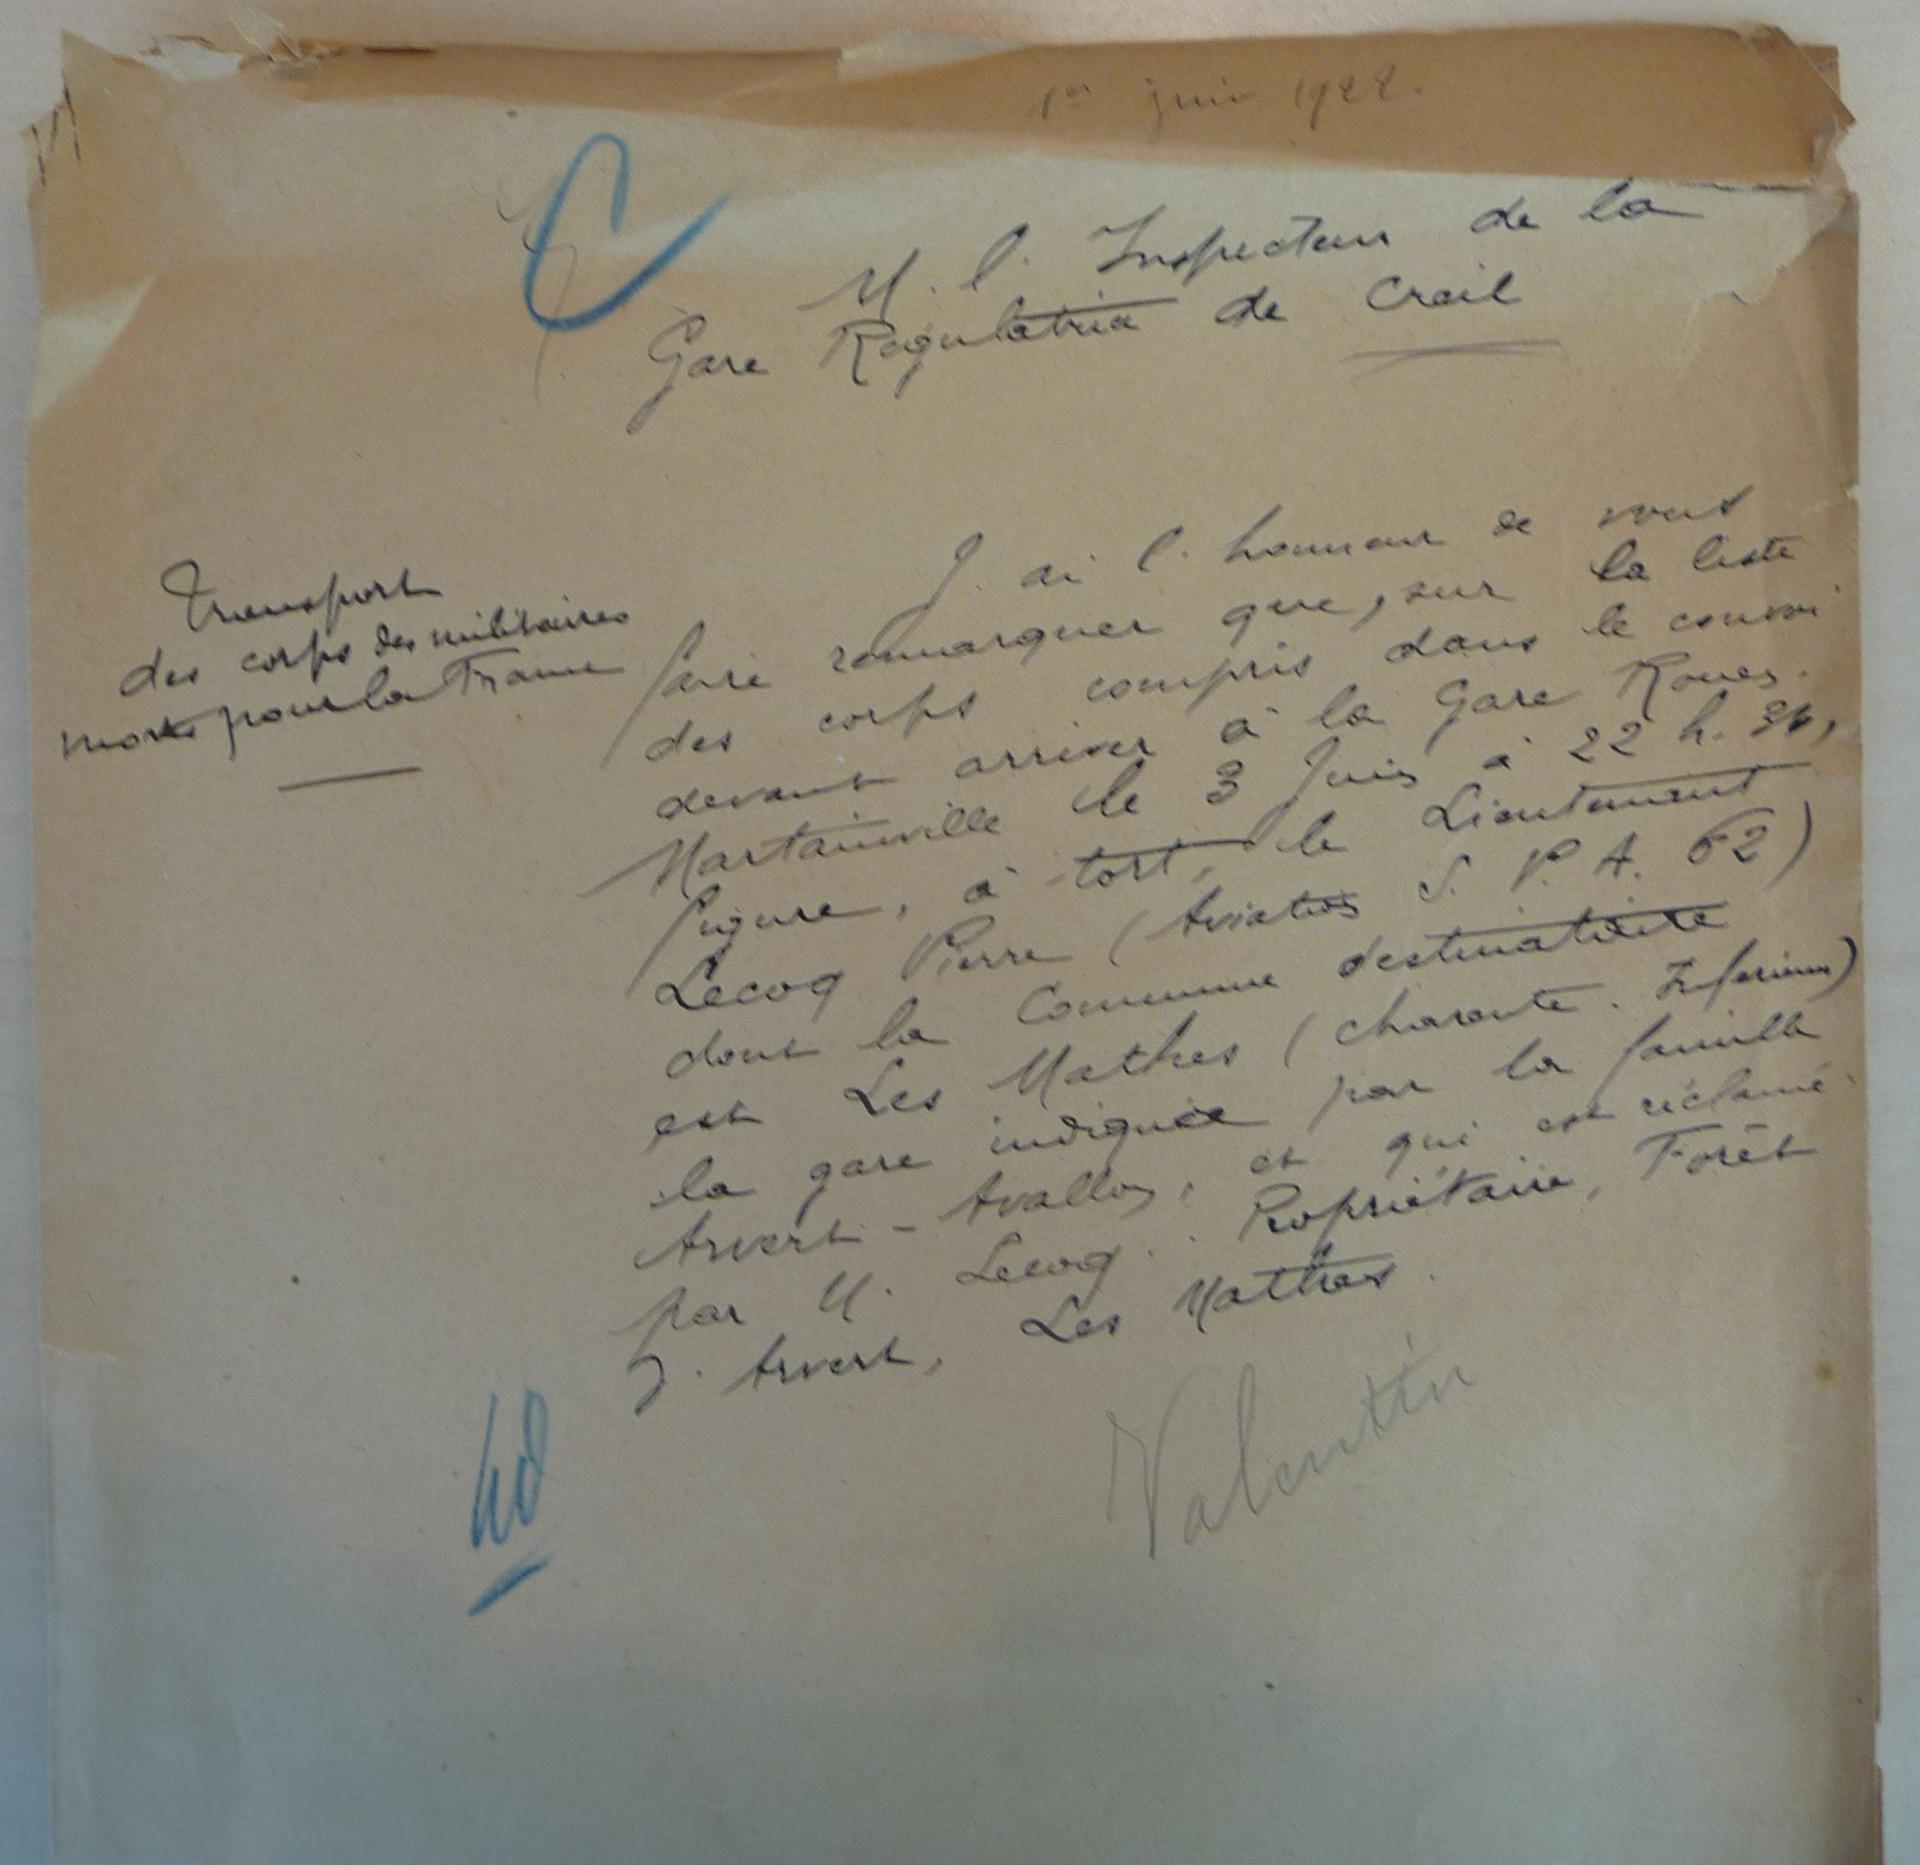 1er juin 1922.
C
M. l'Inspecteur de la
Gare Régulatrice de Creil
Transport
des corps des militaires
morts pour la France
J'ai l'honneur de vous
faire remarquer que, sur la liste
des corps compris dans le convoi
devant arriver à la Gare Rouen-
Martainville le 3 Juin à 22 h. 34,
figure, à tort, le Lieutenant
Lecoq Pierre (Aviation S. P. A. 62)
dont la Commune destinataire
est Les Mathes (Charente-Inférieure)
la gare indiquée par la famille
Arvert-Avallon, et qui est réclamé
par M. Lecoq. Propriétaire, Forêt
d'Arvert, Les Mathes.
Valentin